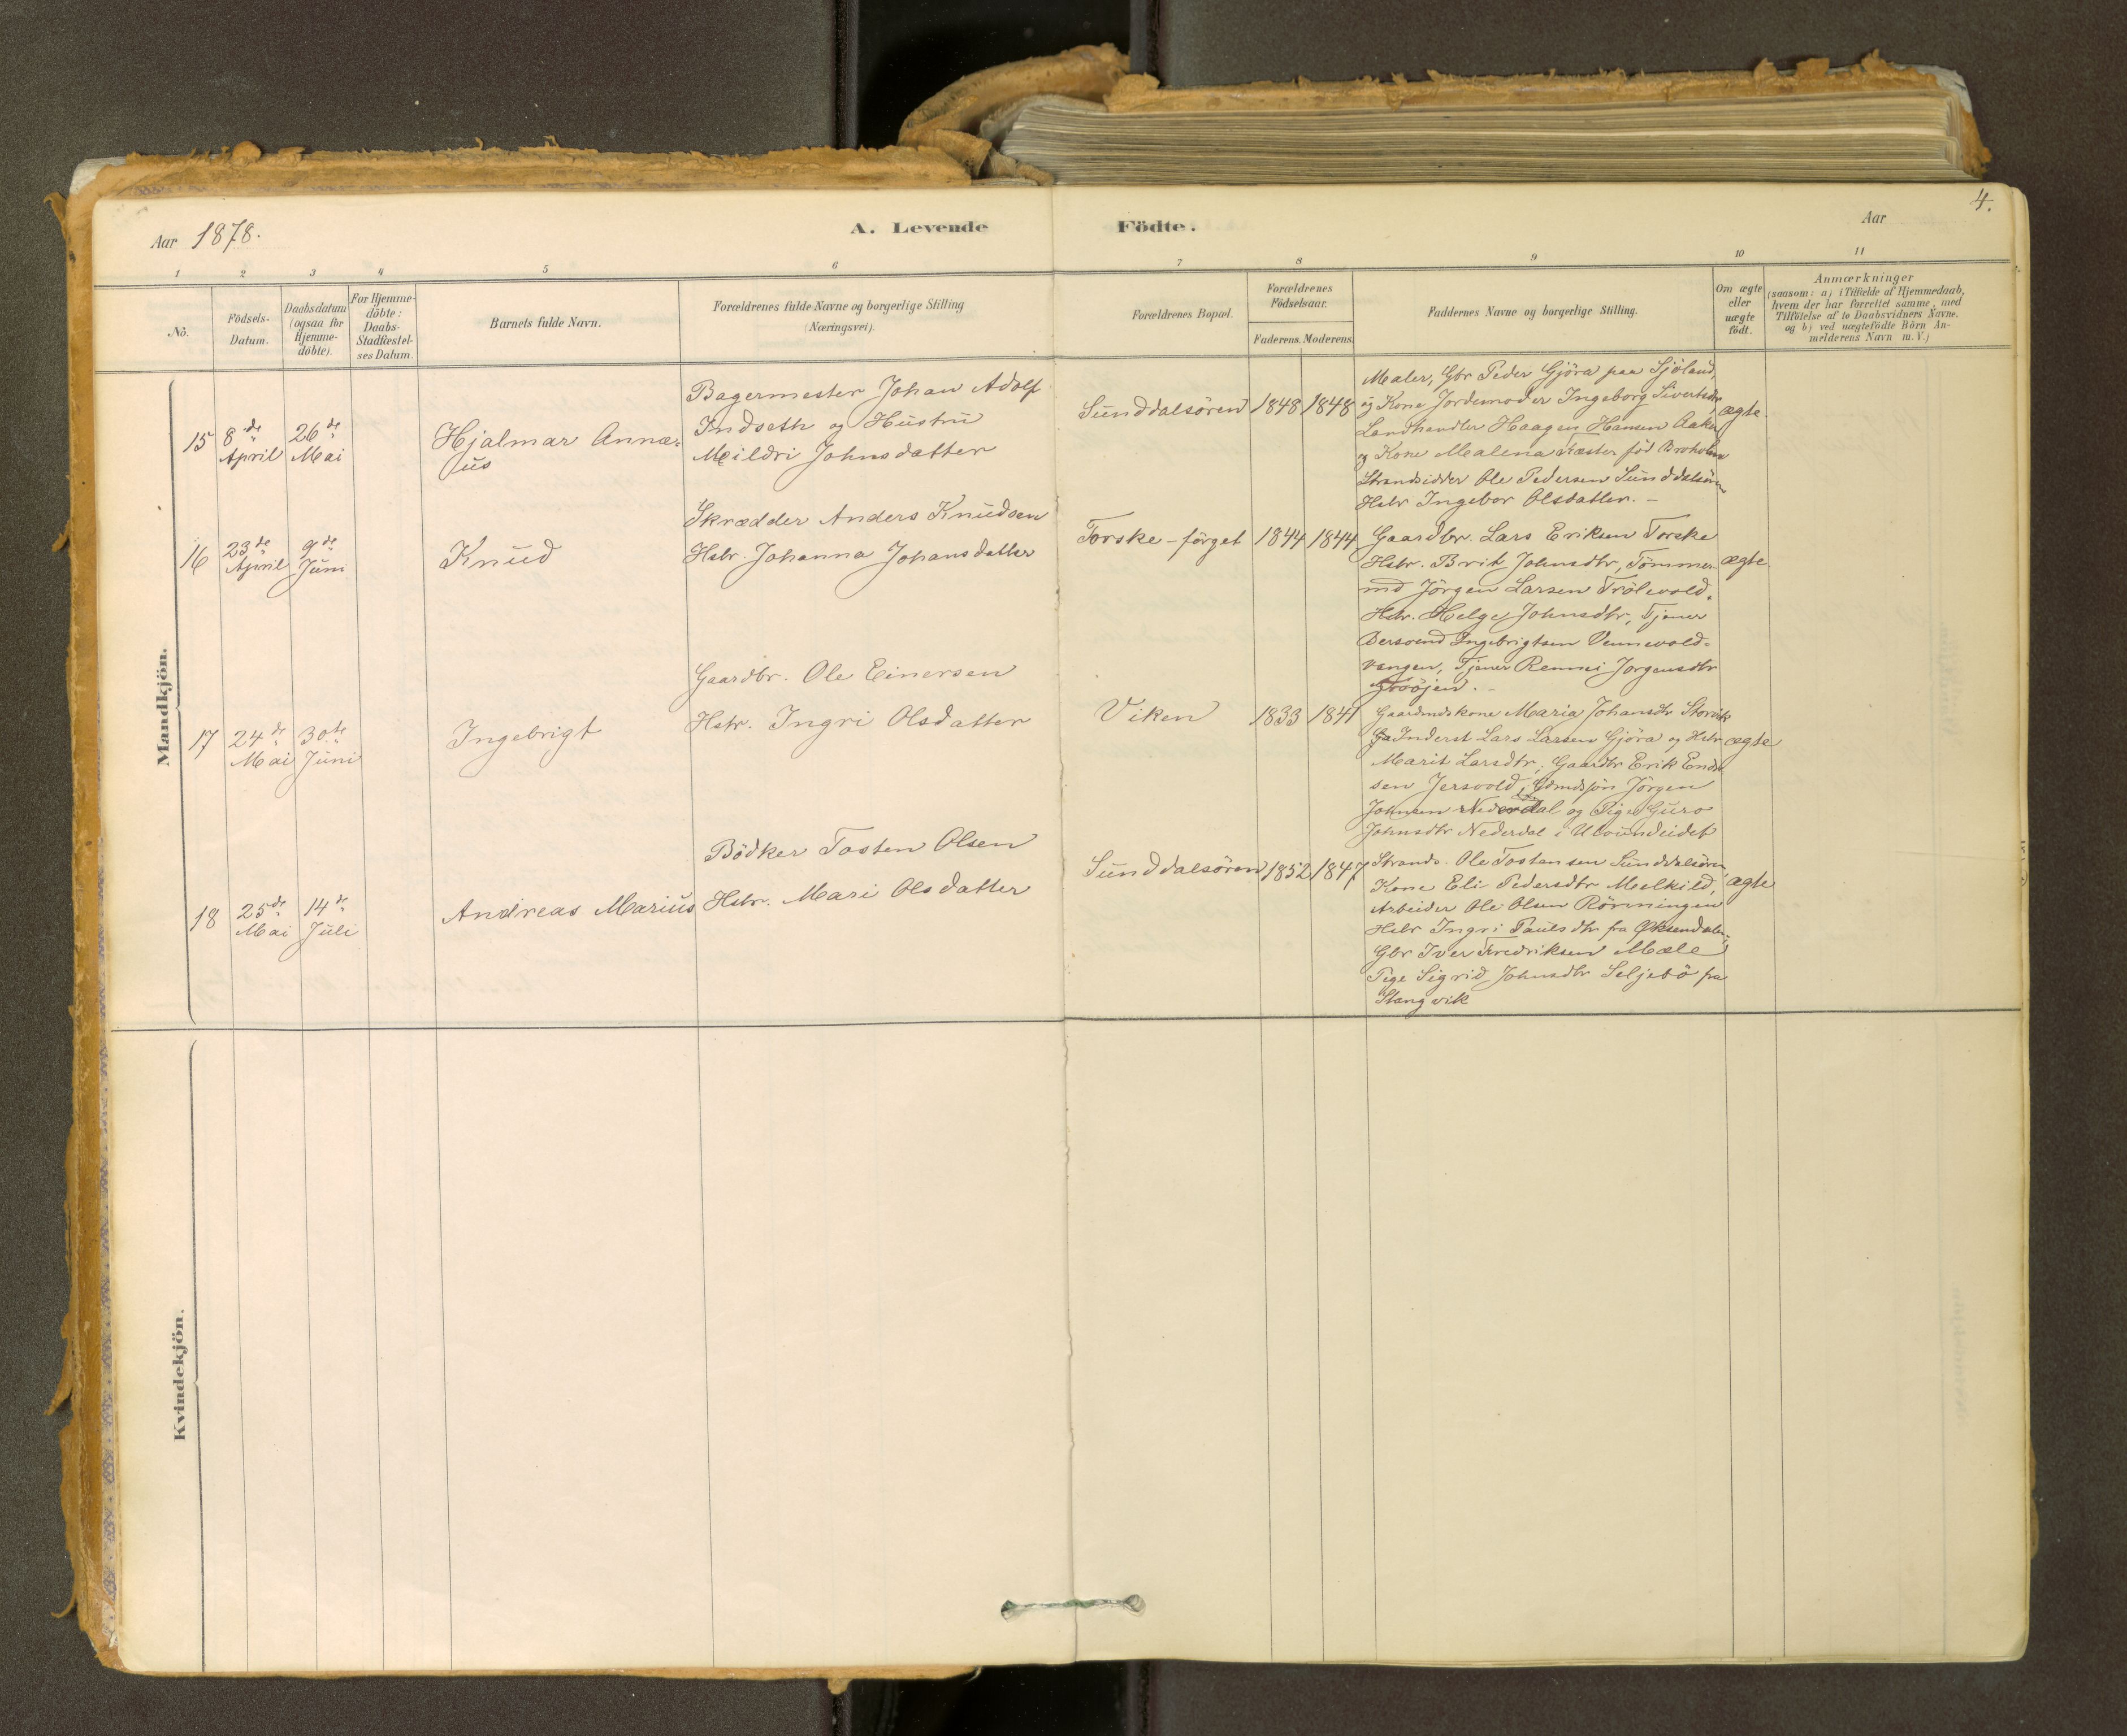 4.
Aar 1878.
A. Levende Födte.
Aar
1 2 3 4 5 6 7 8 9 10 11
Nō.
Födsels-
Datum.
Daabsdatum
(ogsaa for
Hjemme-
döbte).
For Hjemme-
döbte:
Daabs-
Stadfæstel-
ses Datum.
Barnets fulde Navn.
Forældrenes fulde Navne og borgerlige Stilling
(Næringsvei).
Forældrenes Bopæl.
Forældrenes
Födselsaar.
Faderens. Moderens.
Faddernes Navne og borgerlige Stilling.
Om ægte
eller
uægte
födt.
Anmærkninger
(saasom: a) i Tilfælde af Hjemmedaab,
hvem der har forrettet samme, med
Tilföielse af to Daabsvidners Navne.
og b) ved uægtefödte Börn An-
melderens Navn m. V.)
Mandkjön.
15
8de
April
26de
Mai
Hjalmar Annæ-
us
Bagermester Johan Adolf
Indseth og Hustru
Mildri Johnsdatter
Sunddalsören
1848 1848
Maler, Gbr Peder Gjöra paa Sjöland,
og Kone Jordemoder Ingeborg Sivertsdtr,
Landhandler Haagen Hansen Aaker
og Kone Malena Kæster föd Broholm
Strandsidder Ole Pedersen Sunddalsören
Hstr Ingebor Olsdatter. -
ægte
16
23de
April
9de
Juni
Knud
Skrædder Anders Knudsen
Hstr. Johanna Johansdatter
Torske-förget
1844 1844
Gaardbr. Lars Eriksen Torske
Hstr. Brit Johnsdtr, Tömmer-
md Jörgen Larsen Trölevold.
Hstr. Helge Johnsdtr, Tjener
Bersvend Ingebrigtsen Vennevold-
vangen, Tjener Rennei Jorgensdtr
ægte.
17
24de
Mai
30te
Juni
Ingebrigt
Gaardbr. Ole Einersen
Hstr. Ingri Olsdatter
Viken
1833 1841
Gaardmdskone Maria Johansdtr Storvik
Inderst Lars Larsen Gjöra og Hstr
Marit Larsdtr, Gaardbr Erik Endre-
sen Jersvold, Gdmdsön Jörgen
Johnsen Nederdal og Pige Guro
Johnsdtr Nederdal i Ulvundeidet
ægte
18
25de
Mai
14de
Juli
Andreas Marius
Bödker Tosten Olsen
Hstr. Mari Olsdatter
Sunddalsören
1852 1847
Strands. Ole Tostensen Sunddalsören,
Kone Eli Pedersdtr Melkild,
Arbeider Ole Olsen Rönningen
Hstr Ingri Paulsdtr fra Öksendalen,
Gbr Iver Fredriksen Mæle
Pige Sigrid Johnsdtr Seljebö fra
Stangvik
ægte
Kvindekjön.